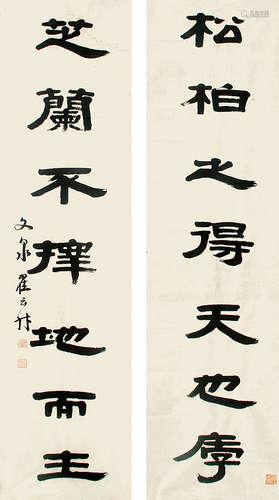 松柏之得天也厚
芝蘭不擇地而生
文泉翟云升